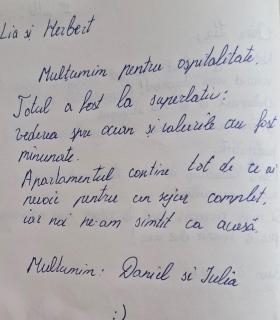 Lia și Herbert
Mulțumim pentru ospitalitate.
Totul a fost la superlativ:
vederea spre ocean și valurile au fost
minunate.
Apartamentul conține tot de ce ai
nevoie pentru un sejur complet,
iar noi ne-am simțit ca acasă.
Mulțumim: Daniel si Iulia
:)